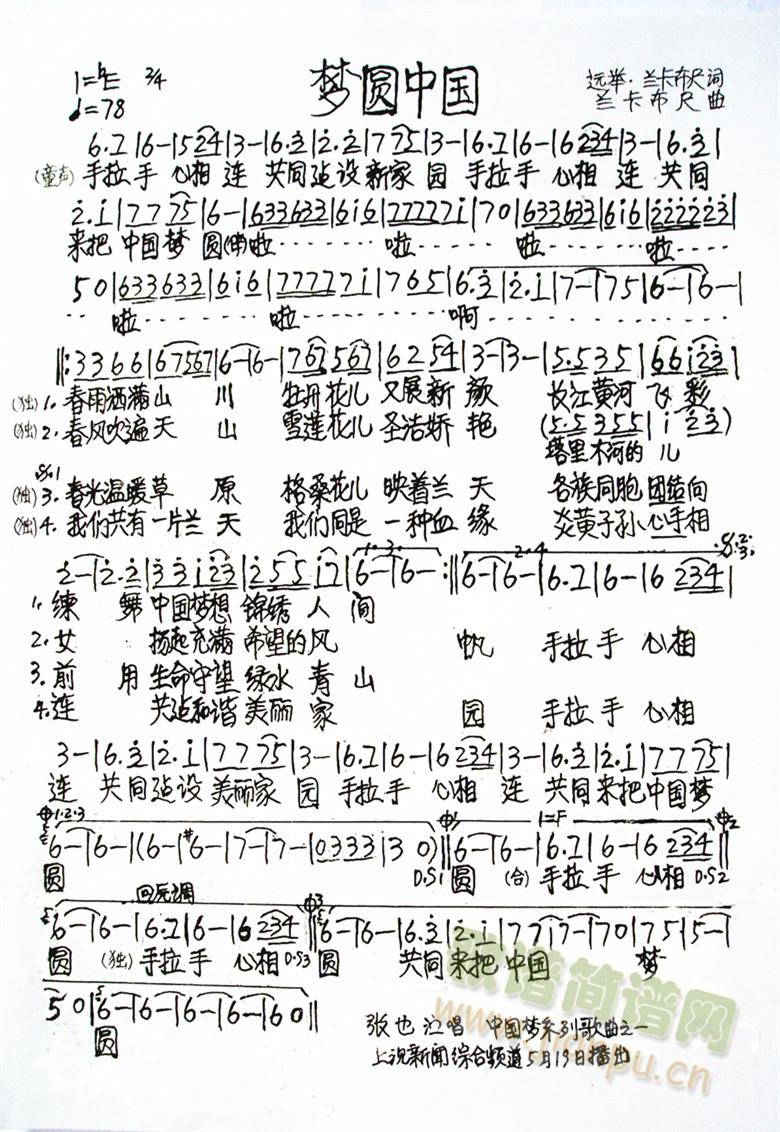 1=♭E 2/4 梦圆中国 远举·兰卡布尺词
♩=78 兰卡布尺曲
6.7|6-|5 24|3-|6.3|2.2|7 75|3-|6.7|6-|6 234|3-|6.3|
(童声) 手拉手 心相 连 共同建设新家 园 手拉手 心相 连 共同
2.i|7 7 75|6-|633633|6i6|777777i|70|633633|6i6|2222223|
来把 中国梦 圆 啦 啦 啦 啦
50|633633|6i6|777777i|765|6.3|2.i|7-|75|6-|6-|
啦 啦 啊
||:3366|67567|6-|6-|767567|62 54|3-|3-|5.535|66i23|
(独)1.春雨洒满山 川 牡丹花儿 又展新 颜 长江黄河 飞 彩
(独)2.春风吹遍天 山 雪莲花儿 圣洁娇 艳 (5.5355|i 23)
塔里木河的 儿
(独)3.春光温暖草 原 格桑花儿 映着兰 天 各族同胞 团结向
(独)4.我们共有一片兰 天 我们同是 一种血 缘 炎黄子孙 心手相
2-|2.2|33i23|2551 7|6-|6-:||6-|6-|6.7|6-|6 234|
1.练 舞 中国梦想 锦绣 人 间
2.女 扬起充满 希望的风 帆 手拉手 心相
3.前 用 生命守望 绿水 青 山
4.连 共建和谐 美丽 家 园 手拉手 心相
3-|6.3|2.i|7 7 75|3-|6.7|6-|6 234|3-|6.3|2.i|77 75|
连 共同建设 美丽家 园 手拉手 心相 连 共同来把中国梦
1.2.3 1=F
6-|6-|(6-|#6-|7-|7-|0333|3 0)||6-|6-|6.7|6-|6 234||
圆 D.S1 圆 (合) 手拉手 心相 D.S2
回原调
6-|6-|6.7|6-|6 234||6-|6-|6.3|2.i|77i|7-|70|75|5-|
圆 (独) 手拉手 心相 D.S3 圆 共同 来把 中国 梦
50|6-|6-|6-|6-|60||
圆 张也 演唱 中国梦系列歌曲之一
上视新闻综合频道5月19日播出
歌谱简谱网
www.jianpu.cn